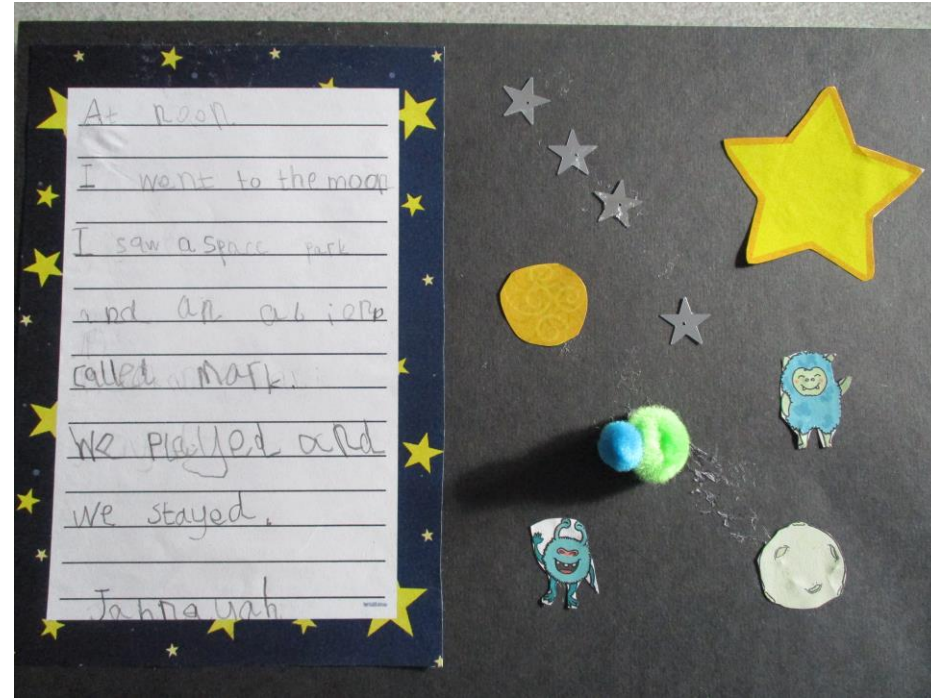 At noon
I went to the moon
I saw a space park
and an alien
called Mark.
We played and
we stayed.
Jannayah